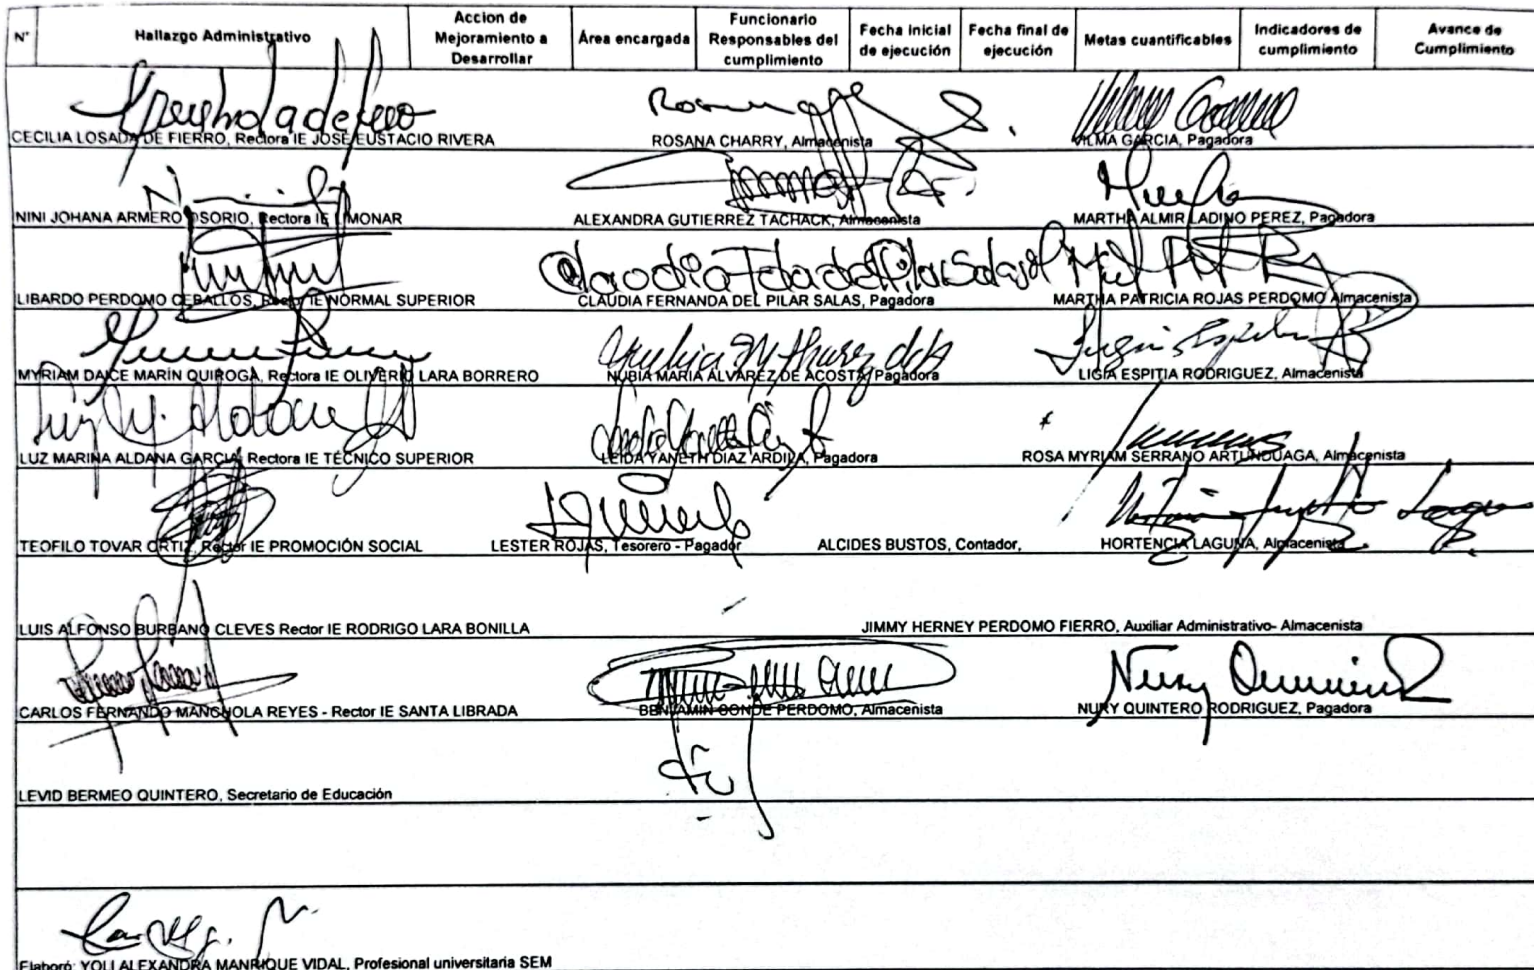 N° Hallazgo Administrativo Accion de Mejoramiento a Desarrollar Área encargada Funcionario Responsables del cumplimiento Fecha inicial de ejecución Fecha final de ejecución Metas cuantificables Indicadores de cumplimiento Avance de Cumplimiento
CECILIA LOSADA DE FIERRO, Rectora IE JOSÉ EUSTACIO RIVERA ROSANA CHARRY, Almacenista VILMA GARCIA, Pagadora
NINI JOHANA ARMERO OSORIO, Rectora IE LIMONAR ALEXANDRA GUTIERREZ TACHACK, Almacenista MARTHA ALMIR LADINO PEREZ, Pagadora
LIBARDO PERDOMO CEBALLOS, Rector IE NORMAL SUPERIOR CLAUDIA FERNANDA DEL PILAR SALAS, Pagadora MARTHA PATRICIA ROJAS PERDOMO Almacenista
MYRIAM DAICE MARÍN QUIROGA, Rectora IE OLIVERIO LARA BORRERO NUBIA MARIA ÁLVAREZ DE ACOSTA, Pagadora LIGIA ESPITIA RODRIGUEZ, Almacenista
LUZ MARINA ALDANA GARCIA, Rectora IE TÉCNICO SUPERIOR LEIDA YANETH DIAZ ARDILA, Pagadora ROSA MYRIAM SERRANO ARTUNDUAGA, Almacenista
TEOFILO TOVAR ORTIZ, Rector IE PROMOCIÓN SOCIAL LESTER ROJAS, Tesorero - Pagador ALCIDES BUSTOS, Contador, HORTENCIA LAGUNA, Almacenista
LUIS ALFONSO BURBANO CLEVES Rector IE RODRIGO LARA BONILLA JIMMY HERNEY PERDOMO FIERRO, Auxiliar Administrativo- Almacenista
Nury Quintero
CARLOS FERNANDO MANCHOLA REYES - Rector IE SANTA LIBRADA BENJAMIN CONDE PERDOMO, Almacenista NURY QUINTERO RODRIGUEZ, Pagadora
LEVID BERMEO QUINTERO, Secretario de Educación
Elaboró: YOLI ALEXANDRA MANRIQUE VIDAL, Profesional universitaria SEM